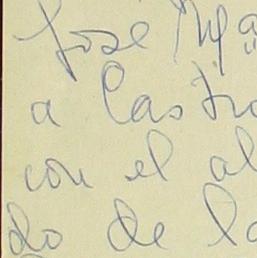 Jose Mª
a Castr
con el al
do de la